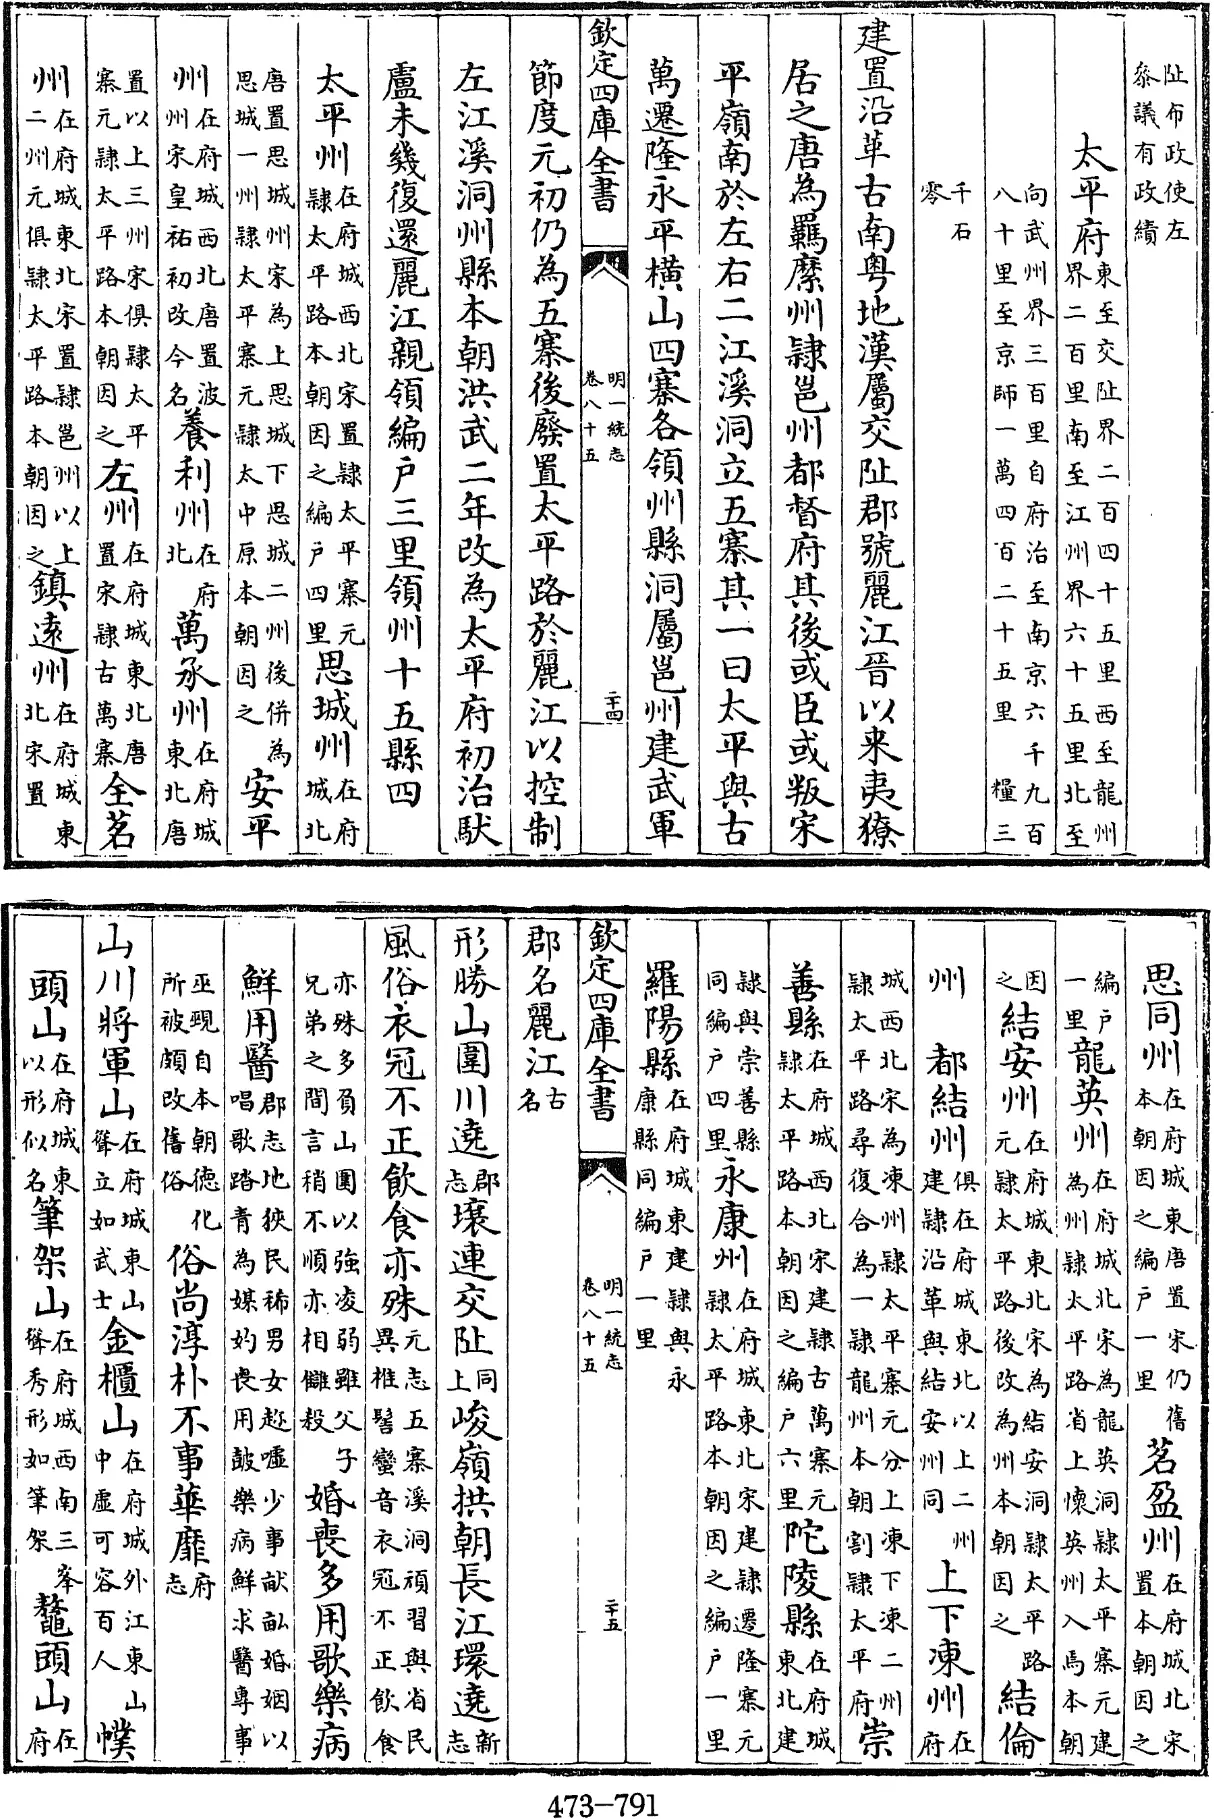 阯布政使左叅議有政績
太平府東至交阯界二百四十五里西至龍州界二百里南至江州界六十五里北至
向武州界三百里自府治至南京六千九百八十里至京師一萬四百二十五里糧三
千石零
建置沿革古南粤地漢屬交阯郡號麗江晉以来夷獠
居之唐為羈縻州隷邕州都督府其後或臣或叛宋
平嶺南於左右二江溪洞立五寨其一曰太平與古
萬遷隆永平橫山四寨各領州縣洞屬邕州建武軍
欽定四庫全書 明一統志卷八十五 二十四
節度元初仍為五寨後廢置太平路於麗江以控制
左江溪洞州縣本朝洪武二年改為太平府初治馱
盧未幾復還麗江親領編户三里領州十五縣四
太平州在府城西北宋置隷太平寨元隷太平路本朝因之編户四里思城州在府城北
唐置思城州宋為上思城下思城二州後併為思城一州隷太平寨元隷太中原本朝因之安平
州在府城西北唐置波州宋皇祐初改今名養利州在府北萬承州在府城東北唐
置以上三州宋俱隷太平寨元隷太平路本朝因之左州在府城東北唐置宋隷古萬寨全茗
州在府城東北宋置隷邕州以上二州元俱隷太平路本朝因之鎮遠州在府城東北宋置
思同州在府城東唐置宋仍舊本朝因之編户一里茗盈州在府城北宋置本朝因之
編户一里龍英州在府城北宋為龍英洞隷太平寨元建為州隷太平路省上懷英州入馬本朝
因之結安州在府城東北宋為結安洞隷太平路元隷太平路後改為州本朝因之結倫
州都結州俱在府城東北以上二州建隷沿革與結安州同上下凍州在府
城西北宋為凍州隷太平寨元分上凍下凍二州隷太平路尋復合為一隷龍州本朝割隷太平府崇
善縣在府城西北宋建隷古萬寨元隷太平路本朝因之編户六里陀陵縣在府城東北建
隷與崇善縣同編户四里永康州在府城東北宋建隷遷隆寨元隷太平路本朝因之編户一里
羅陽縣在府城東建隷與永康縣同編户一里
欽定四庫全書 明一統志卷八十五 二十五
郡名麗江古名
形勝山圍川遶郡志壤連交阯同上峻嶺拱朝長江環遶新志
風俗衣冠不正飲食亦殊元志五寨溪洞頑習與省民異椎髻蠻音衣冠不正飲食
亦殊多負山圍以強凌弱雖父子兄弟之間言稍不順亦相讎殺婚喪多用歌樂病
鮮用醫郡志地狹民稀男女趂墟少事畎畝婚姻以唱歌踏青為媒妁喪用鼓樂病鮮求醫專事
巫覡自本朝德化所被頗改舊俗俗尚淳朴不事華靡府志
山川將軍山在府城東山聳立如武士金櫃山在府城外江東山中虛可容百人幞
頭山在府城東以形似名筆架山在府城西南三峯聳秀形如筆架鼇頭山在府
473-791